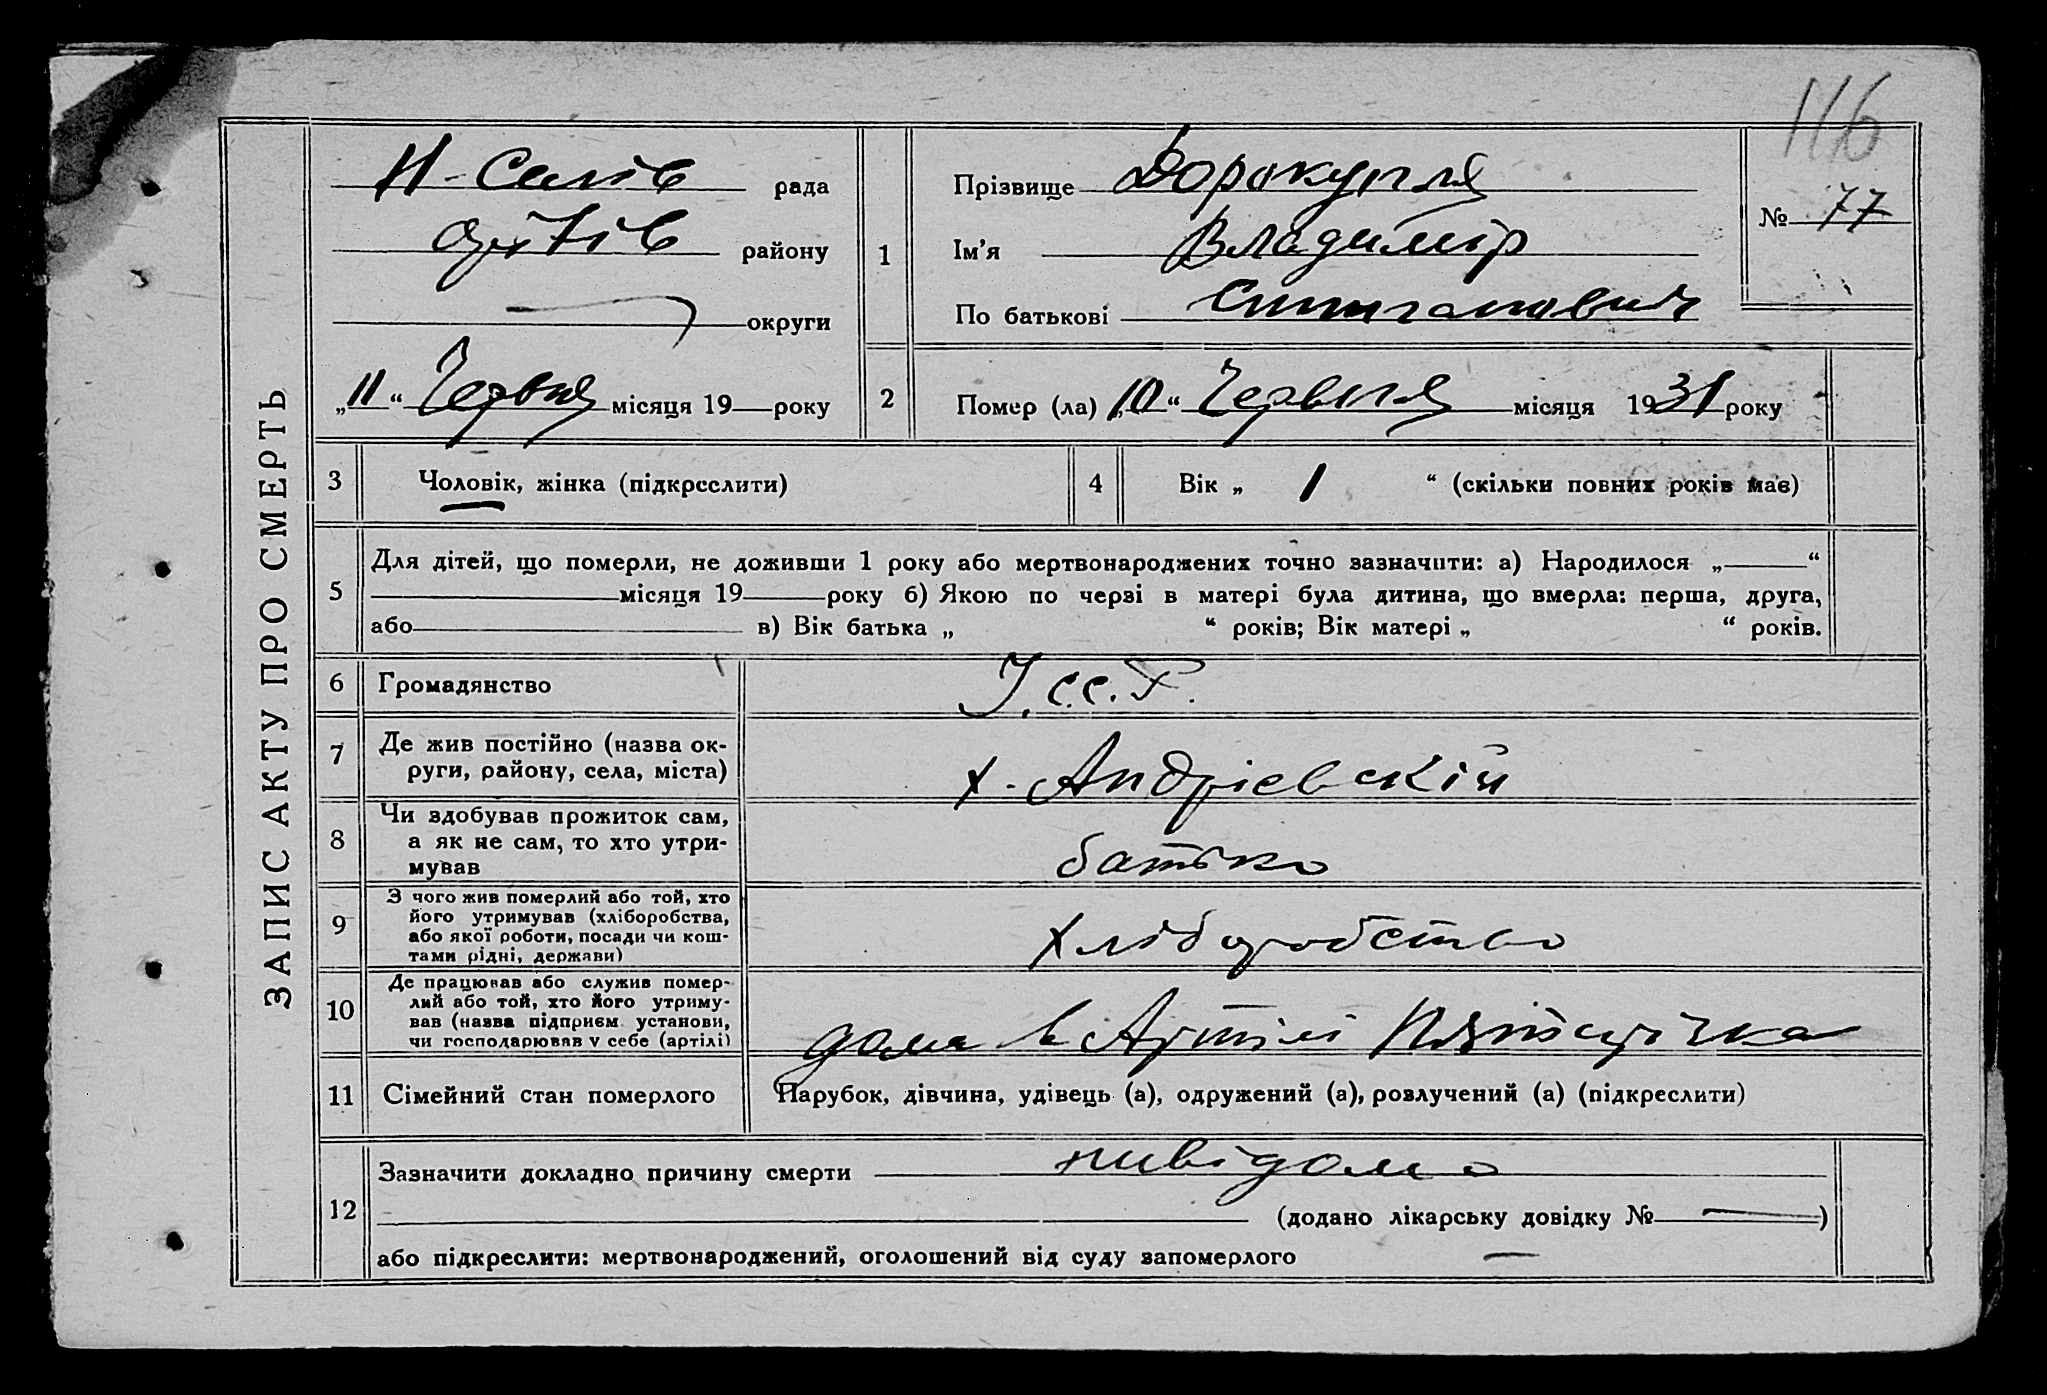 116
ЗАПИС АКТУ ПРО СМЕРТЬ
рада
району
округи
„11“ Червня місяця 19 року
1
Прізвище
Ім’я Владимір
По батькові
№ 77
2
Помер (ла) „10“ Червня місяця 1931 року
3 Чоловік, жінка (підкреслити)
4 Вік „ 1 “ (скільки повних років має)
5
Для дітей, що померли, не доживши 1 року або мертвонароджених точно зазначити: а) Народилося „ “
місяця 19 року б) Якою по черзі в матері була дитина, що вмерла: перша, друга,
або в) Вік батька „ “ років; Вік матері „ “ років.
6 Громадянство У.С.С.Р.
7 Де жив постійно (назва ок-
руги, району, села, міста)
х. Андрієвскій
8 Чи здобував прожиток сам,
а як не сам, то хто утри-
мував
батько
9 З чого жив померлий або той, хто
його утримував (хліборобства,
або якої роботи, посади чи кош-
тами рідні, держави)
хліборобство
10 Де працював або служив помер-
лий або той, хто його утриму-
вав (назва підприєм. установи,
чи господарював у себе (артілі)
дома в Артілі
11 Сімейний стан померлого
Парубок, дівчина, удівець (а), одружений (а), розлучений (а) (підкреслити)
12
Зазначити докладно причину смерти невідомо
(додано лікарську довідку № )
або підкреслити: мертвонароджений, оголошений від суду запомерлого